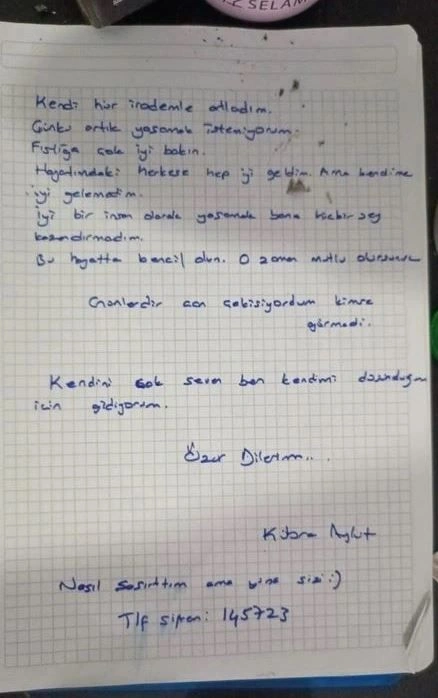 SELAM
Kendi hür irademle atladım.
Çünkü artık yaşamak istemiyorum.
Fıstığa çok iyi bakın.
Hayatımdaki herkese hep iyi geldim. Ama kendime
iyi gelemedim.
iyi bir insan olarak yaşamak bana hiçbir şey
kazandırmadım.
Bu hayatta bencil olun. O zaman mutlu olursunuz
Günlerdir can çekişiyordum kimse
görmedi.
Kendini çok seven ben kendimi düşündüğüm
için gidiyorum.
Özür Dilerim...
Kübra Aykut
Nasıl şaşırttım ama yine sizi :)
Tlf şifrem: 145723